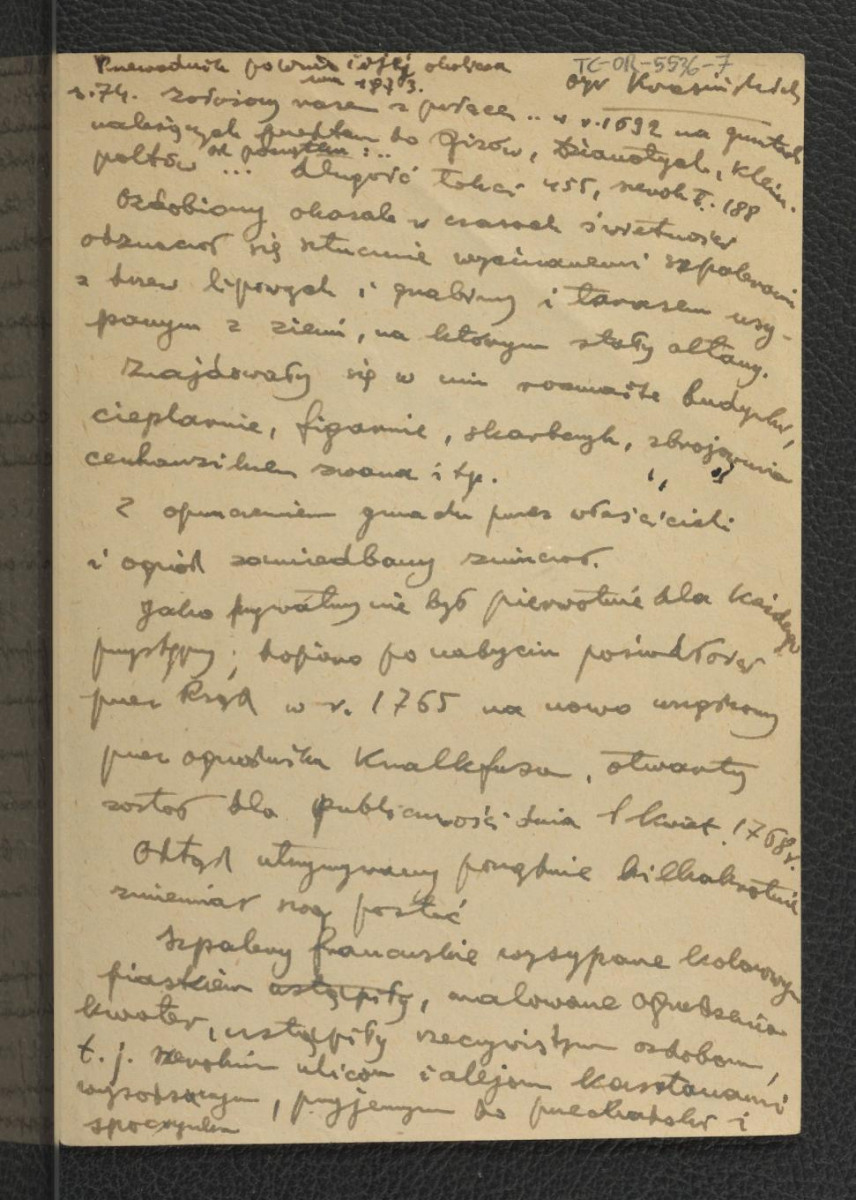 Przewodnik po Warsz. i dalszej okolicach
TC-OR-5536-7
na 1873.
ogr Krasińskich
s. 74. Założony razem z pałacem .. w r. 1692 na gruntach
należących przedtem do Gizów, Dzianotych, Klein-
poltów od powstan : ..
... długość łokci 455, szerok ł. 188
Ozdobiony okazale w czasach świetności
odznaczał się sztucznie wycinanemi szpalerami
z drzew lipowych i grabiny i tarasem usy-
panym z ziemi, na którym stały altany.
Znajdowały się w nim rozmaite budynki,
cieplarnie, figarnie, skarbczyk, zbrojownia
cenhauzikiem zwana i tp.
Z opuszczeniem gmachu przez właścicieli
i ogród zaniedbany zniszczał.
Jako prywatny nie był pierwotnie dla każdego
przystępny; dopiero po nabyciu posiadłości
przez Rząd w r. 1765 na nowo urządzony
przez ogrodnika Knalkfusa, otwarty
został dla publiczności dnia 1 kwiet. 1768 r.
Odtąd utrzymywany porządnie kilkakrotnie
zmieniał swą postać
Szpalery francuskie wysypane kolorowym
piaskiem ustąpiły, malowane ogrodzenia
kwater, ustąpiły rzeczywistym ozdobom,
t. j. szerokim ulicom i alejom kasztanami
wysadzanym, przyjemnym do przechadzki i
spoczynku